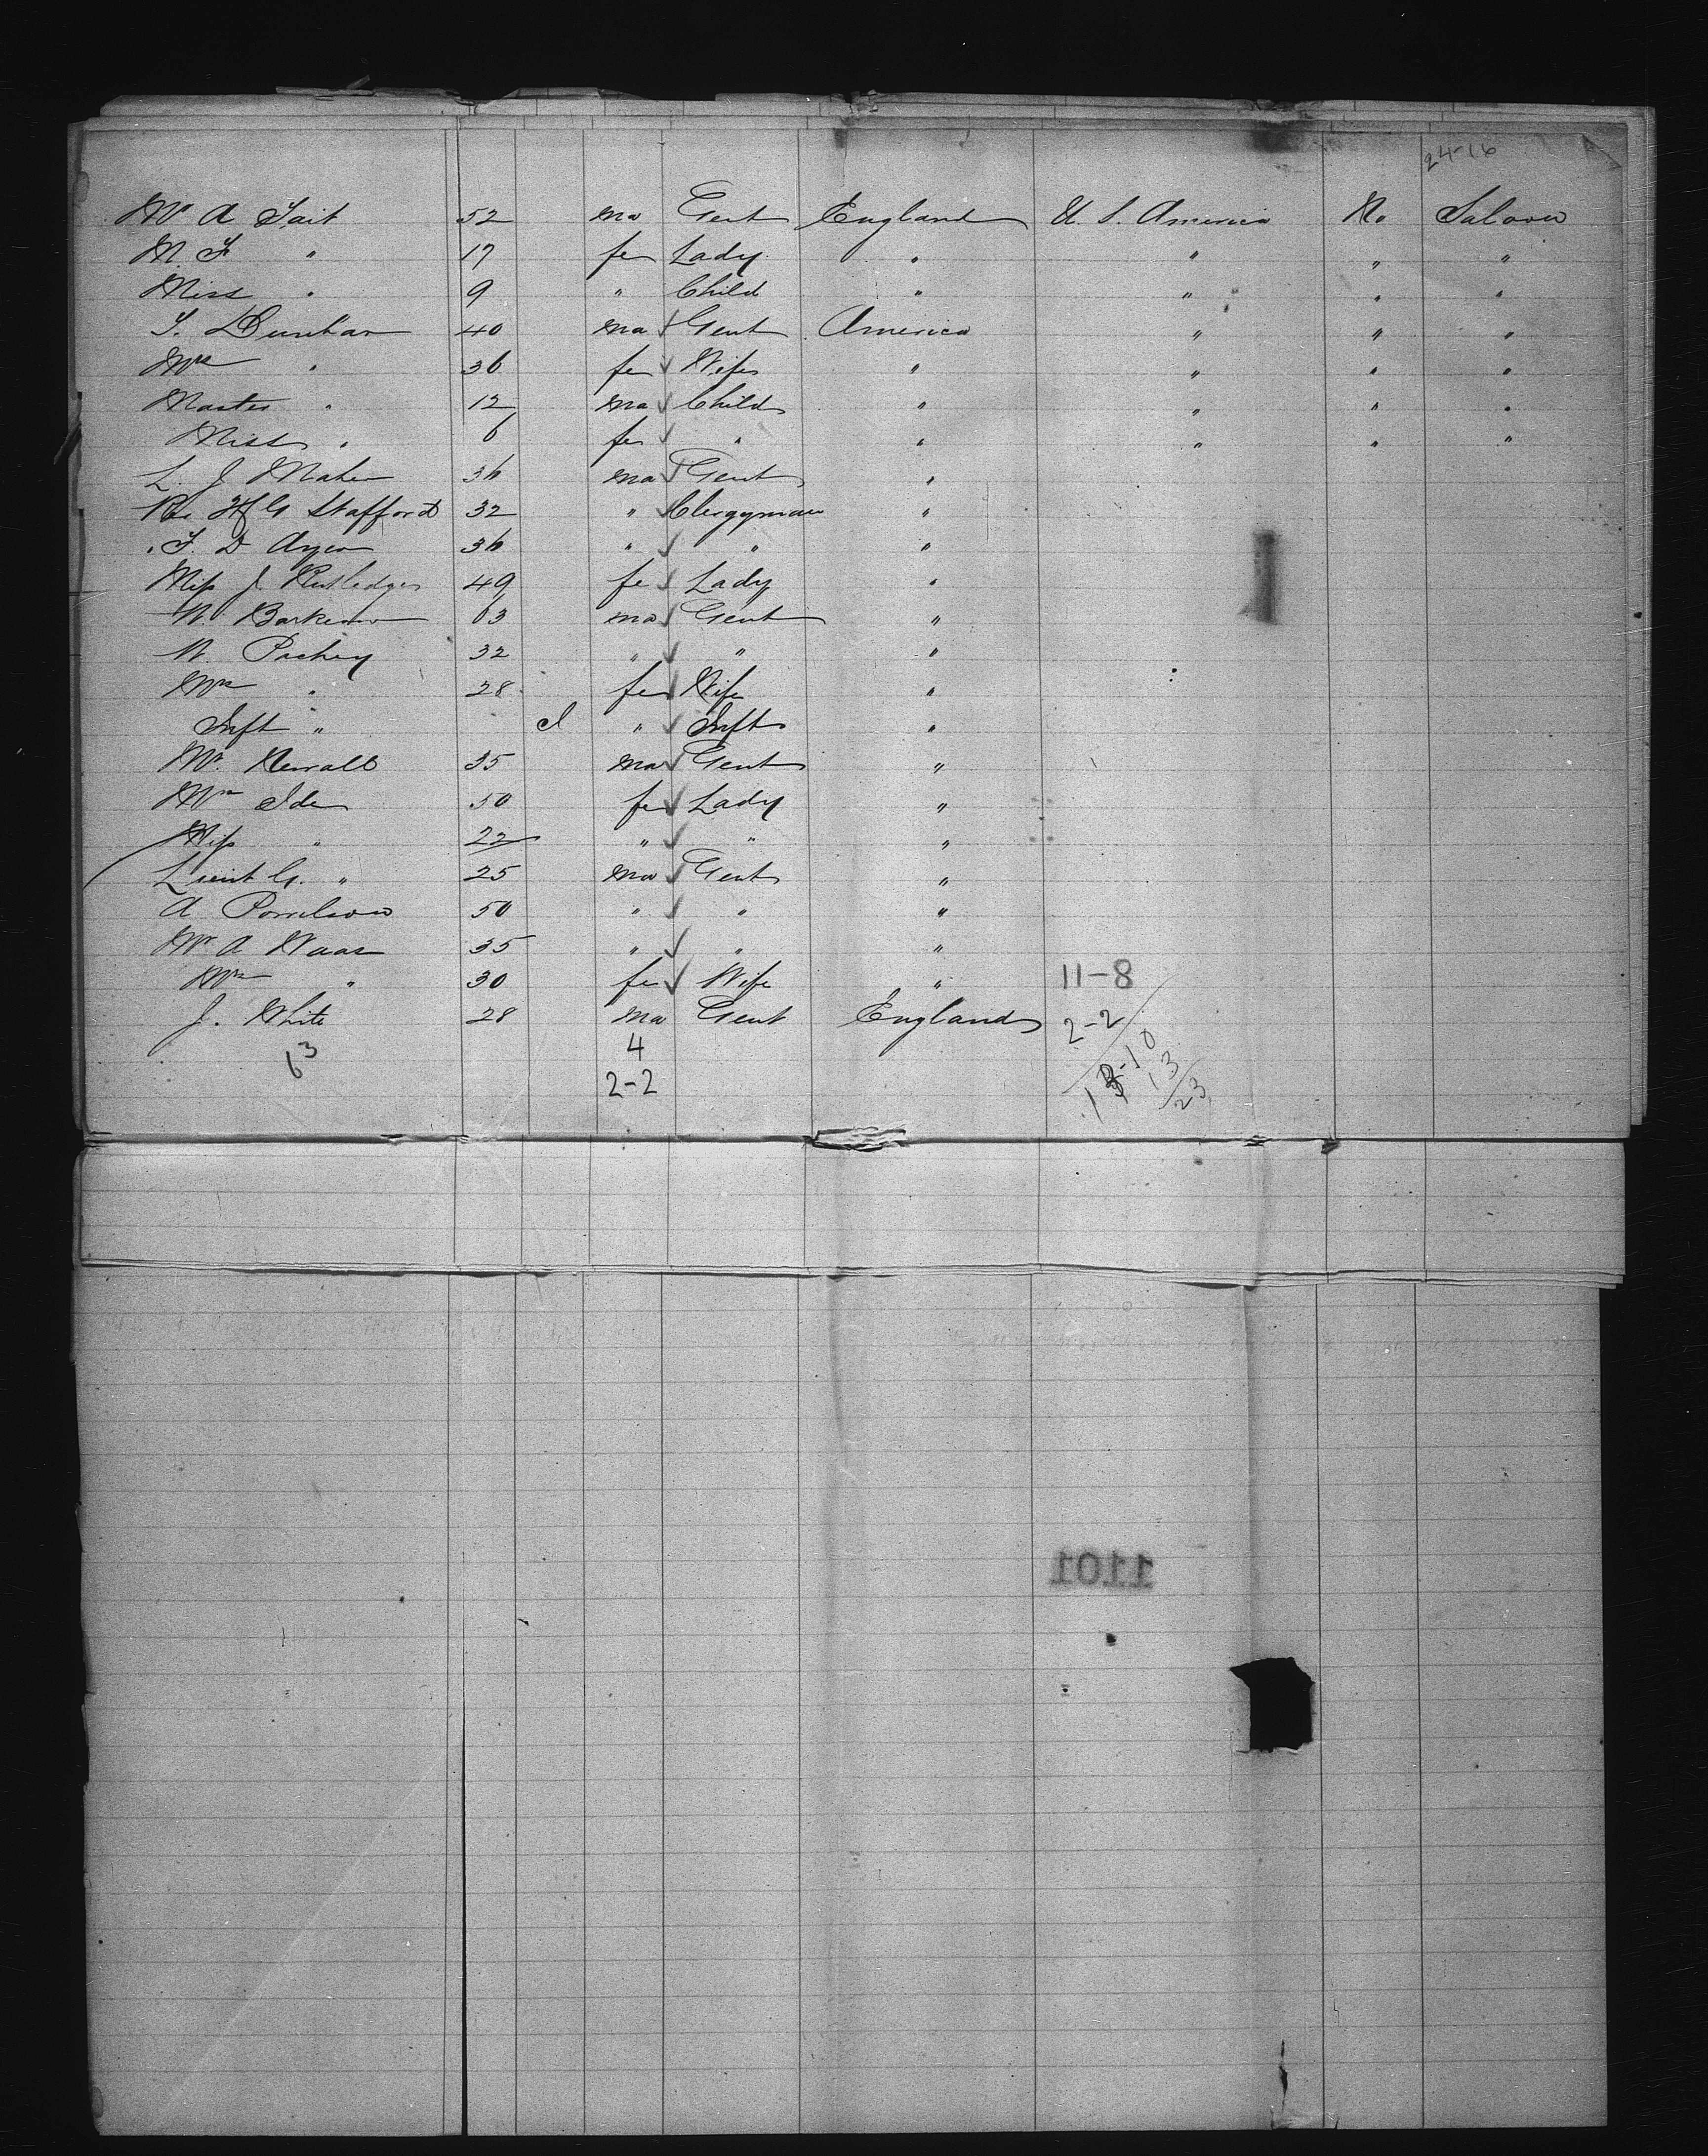 24-16
Mr A Tait 52 ma Gent England U. S. America No Saloon
M. F " 17 fe Lady " " " "
Miss " 9 " Child " " " "
S. Dunbar 40 ma Gent America " " "
Mrs " 36 fe Wife " " " "
Master " 12 ma Child " " " "
Miss " 6 fe " " " " "
L. J Maher 36 ma Gent "
Rev H G Stafford 32 " Clergyman "
" F. D 36 " " "
Miss J Rutledge 49 fe Lady "
W. 63 ma Gent "
W. 32 " " "
Mrs " 28 fe Wife "
Inft " I " Inft "
W. 35 ma Gent "
Mrs Ide 50 fe Lady "
Miss " 22 " " "
Lieut G. " 25 ma Gent "
A 50 " " "
Mr A Haas 35 " " "
Mrs " 30 fe Wife " 11-8
J. White 28 ma Gent England 2-2
63 4 13-10
2-2 13
23
1101